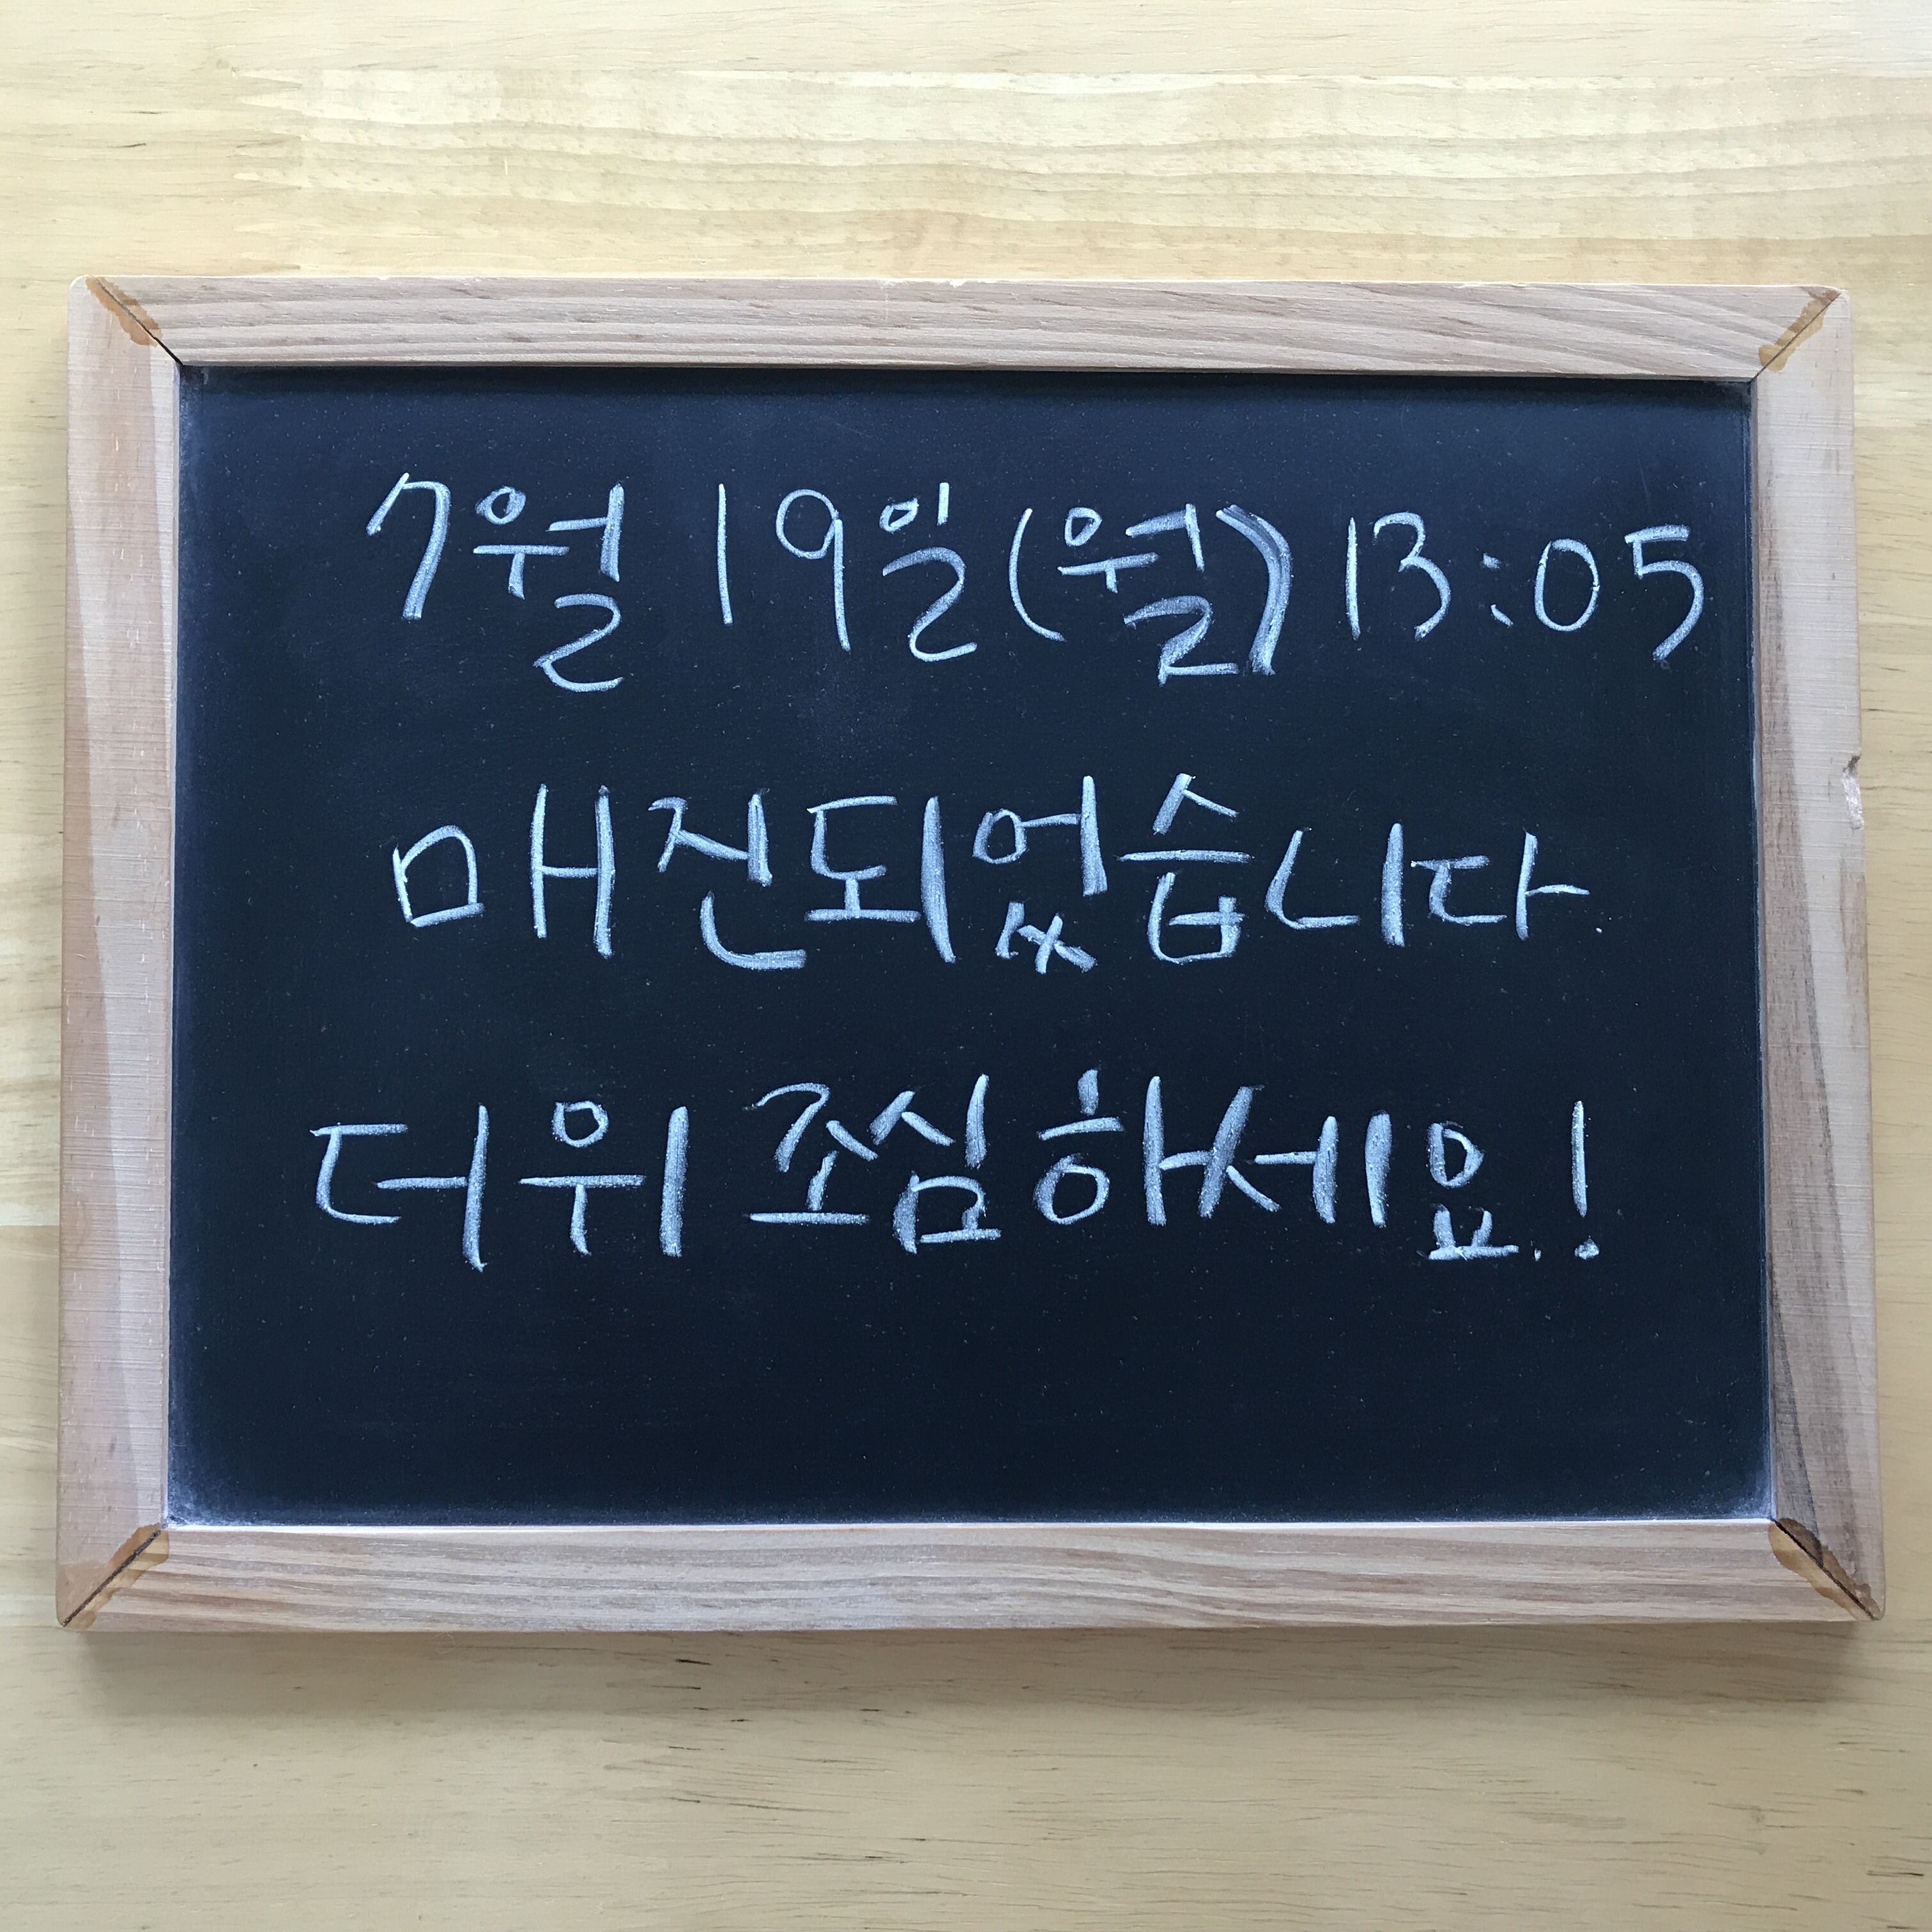 7월 19일(월) 13:05
매진되었습니다.
더위 조심하세요.!